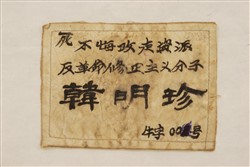 死不悔改走资派
反革命修正主义分子
韓明珍
牛字00号